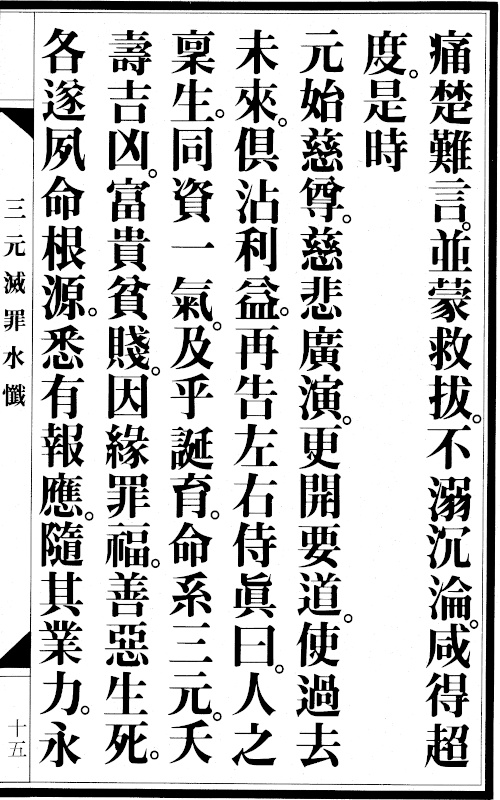 痛楚難言。並蒙救拔。不溺沉淪。咸得超
度。是時
元始慈尊。慈悲廣演。更開要道。使過去
未來。俱沾利益。再告左右侍眞曰。人之
稟生。同資一氣。及乎誕育。命系三元。夭
壽吉凶。富貴貧賤。因緣罪福。善惡生死。
各遂夙命根源。悉有報應。隨其業力。永
三元滅罪水懺
十五